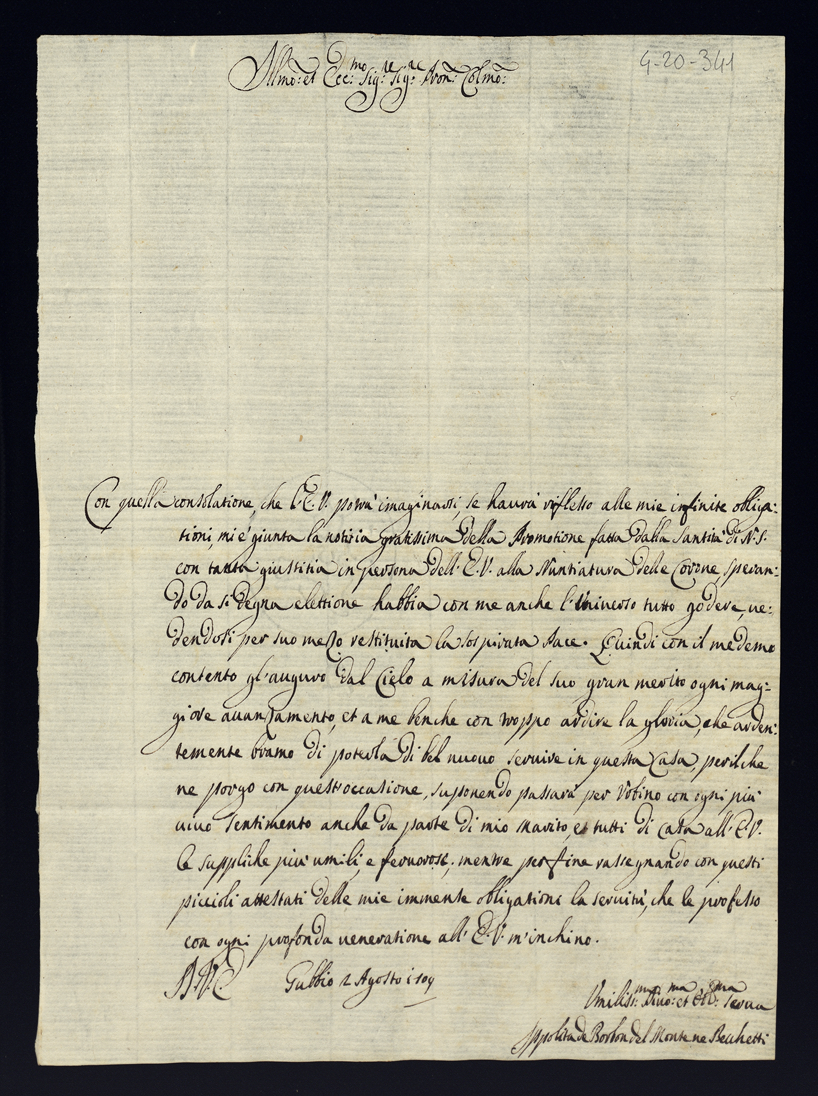 4-20-341
Illmo: et Ecc:mo Sig:re Sig:re Pron: Colmo:
Con quella consolatione, che l'E.V. potrà imaginarsi, se haurà riflesso alle mie infinite obliga-
tioni, mi è giunta la notitia gratissima della Promotione fatta dalla Santità di N.S.
con tanta giustitia in persona dell'E.V. alla Nuntiatura delle Corone, speran-
do da sì degna elettione habbia con me anche l'Universo tutto godere, ue-
dendosi per suo mezo restituita la sospirata Pace. Quindi con il medemo
contento gl'auguro dal Cielo a misura del suo gran merito ogni mag-
giore auanzamento, et a me benche con troppo ardire la gloria, che arden-
temente bramo di poterla di bel nuouo seruire in questa Casa, perilche
ne porgo con quest'occasione, suponendo passarà per Vrbino con ogni più
uiuo sentimento anche da parte di mio marito, et tutti di Casa all'E.V.
le suppliche più umili, e feruorose, mentre per fine rassegnando con questi
piccioli attestati delle mie immense obligationi la seruitù, che le professo
con ogni profonda ueneratione all'E.V. m'inchino.
D.V.E Gubbio 2 Agosto
Vmiliss:ma Diuo:ma et Obl:ma Serua
Ippolita de Borbon del Monte ne Becchetti